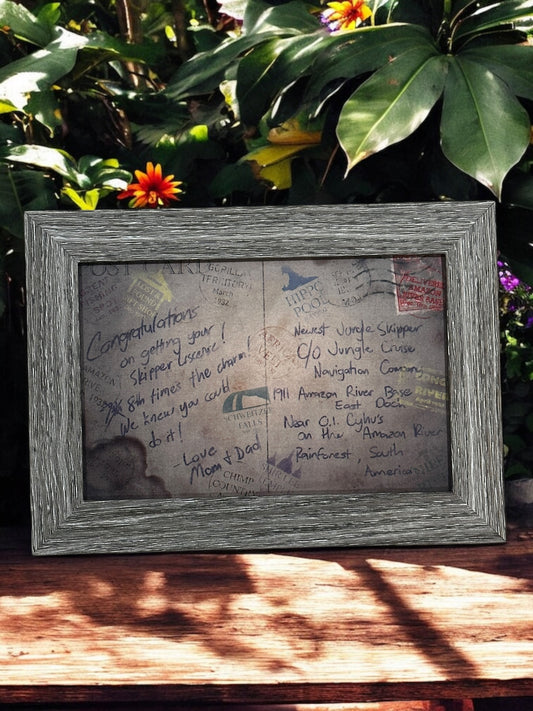 POST CARD
GORILLA
TERRITORY
March
1932
HIPPO
POOL
Congratulations
on getting your
Skipper Liscense!
8th time's the charm!
We knew you could
do it!
-Love
Mom & Dad
SCHWEITZER
FALLS
Newest Jungle Skipper
c/o Jungle Cruise
Navigation Company
1911 Amazon River Base
East Dock
Near O.I. Cyhu's
on the Amazon River
Rainforest, South
America
CONGO
COUNTRY